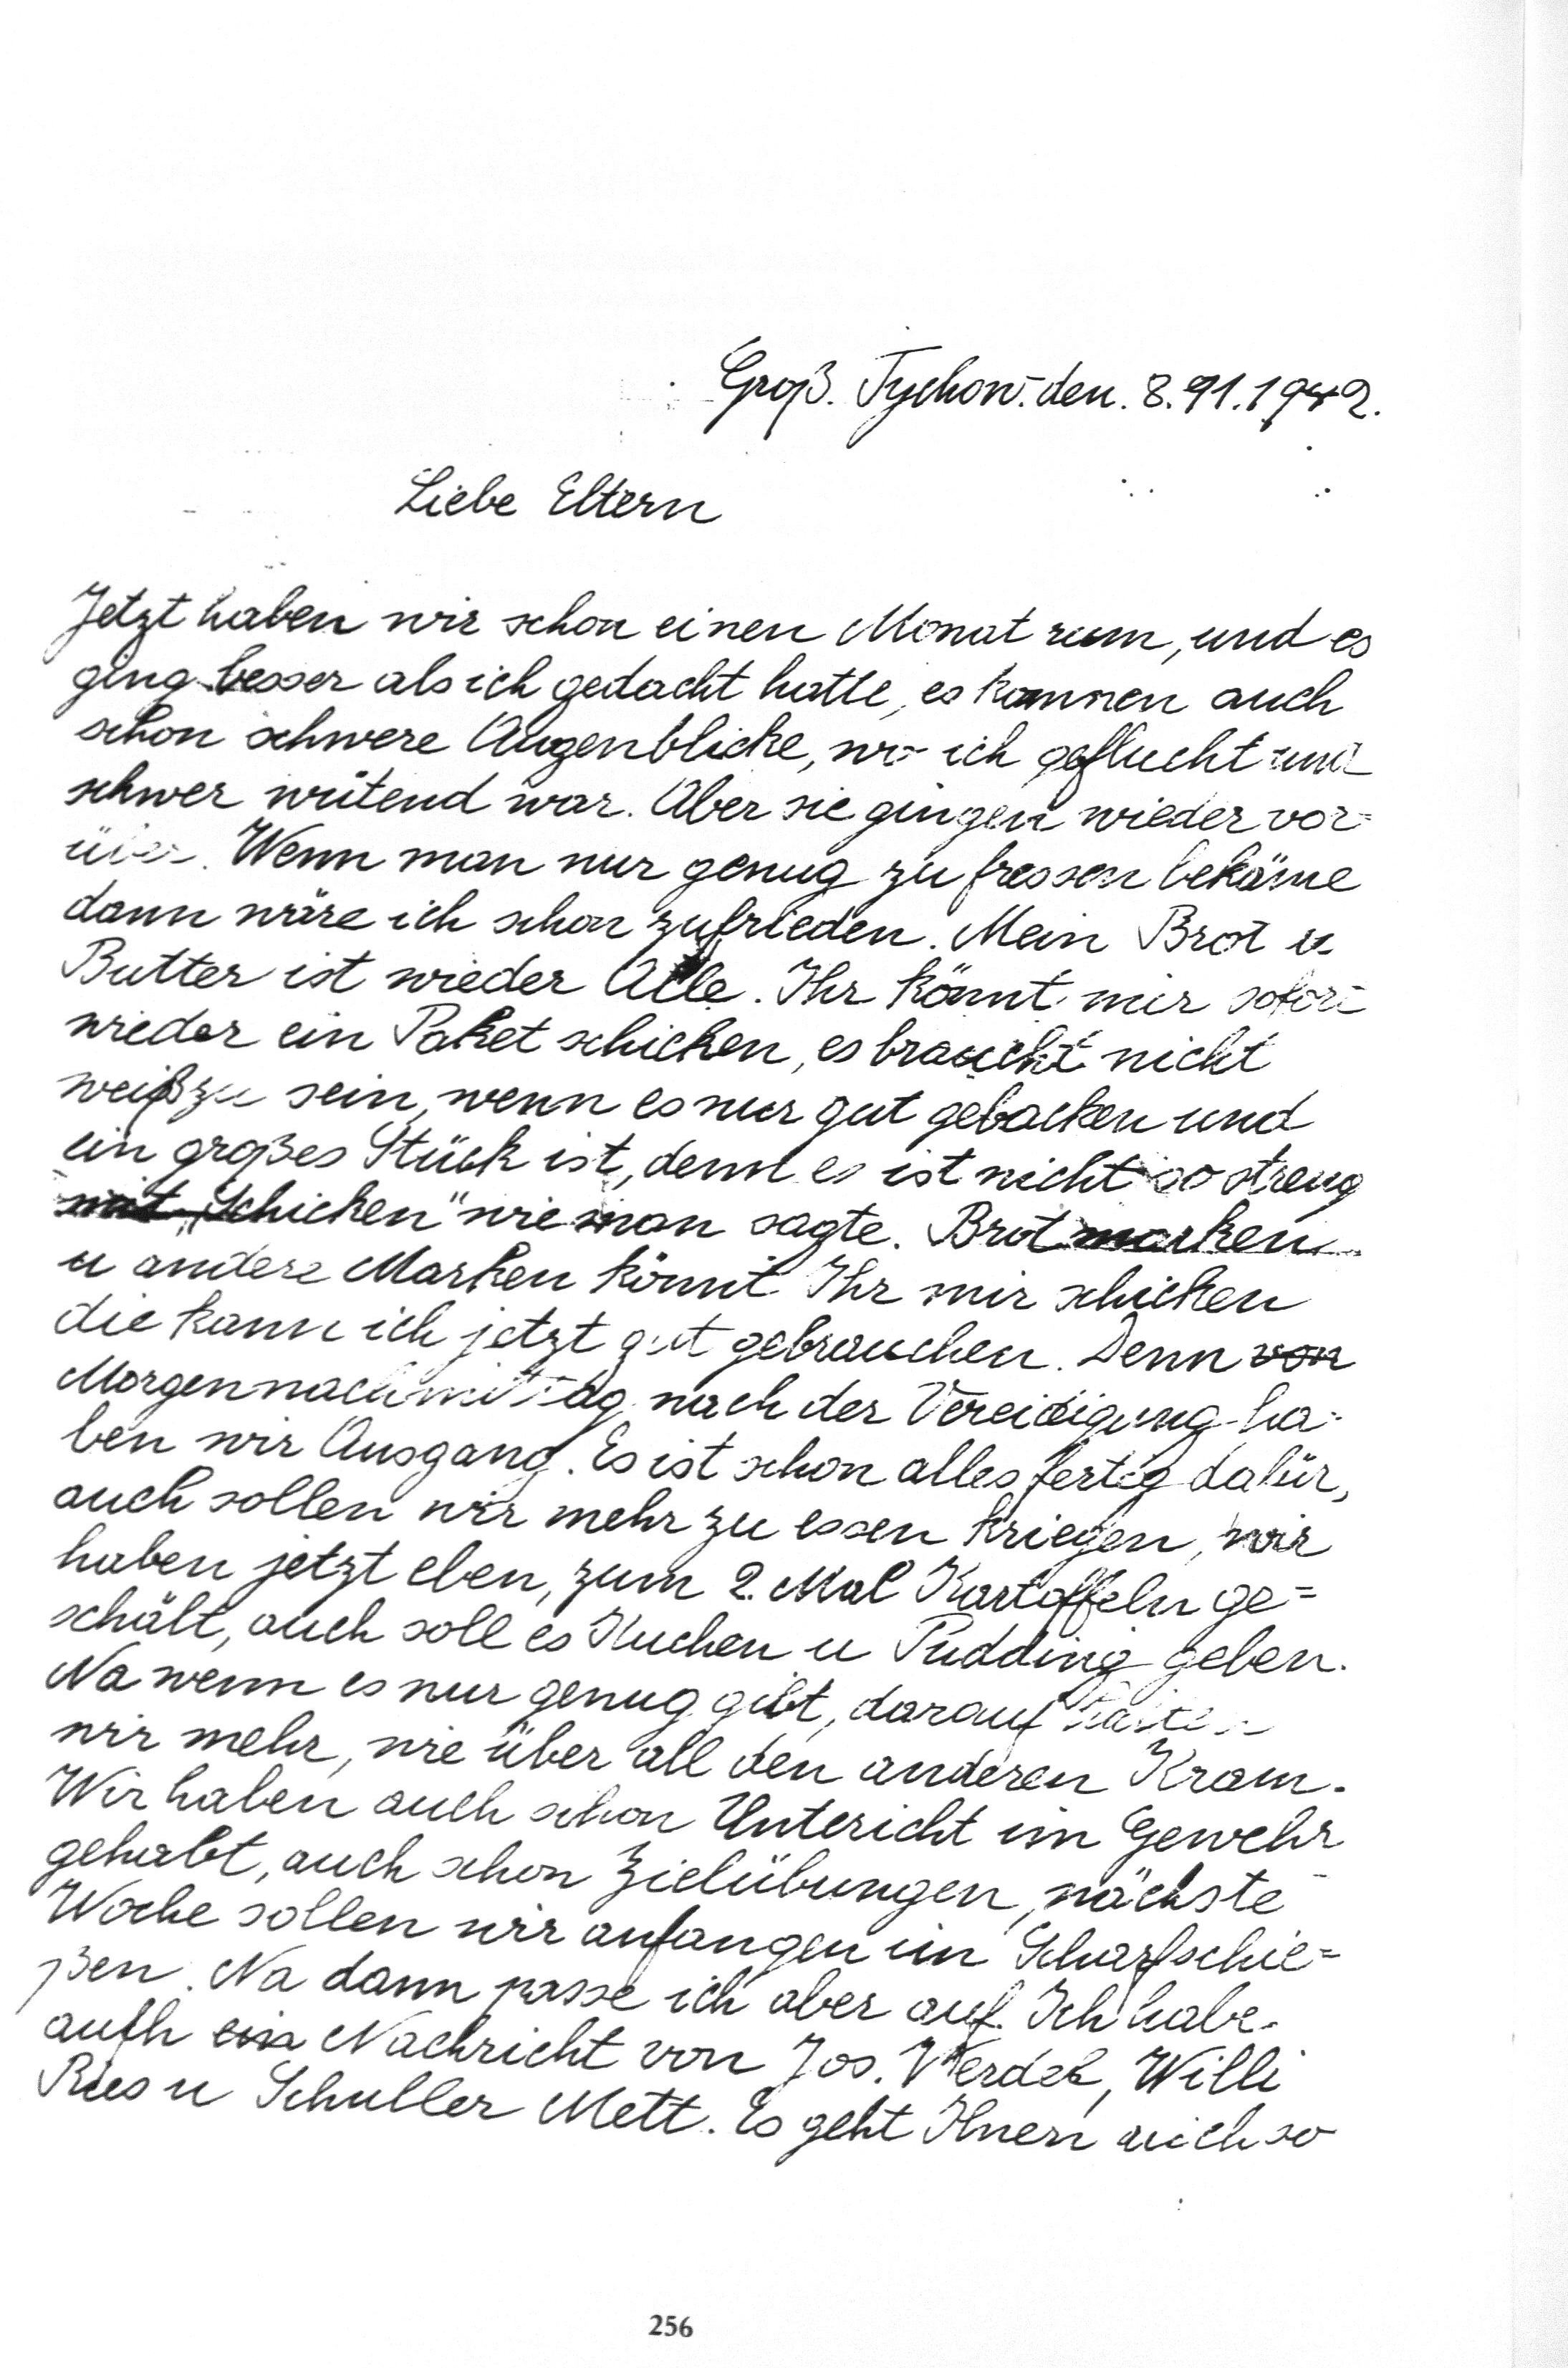 Groß. Tychow. den. 8.11.1942.
Liebe Eltern
Jetzt haben wir schon einen Monat rum, und es
ging besser als ich gedacht hatte, es kammen auch
schon schwere Augenblicke, wo ich geflucht und
schwer wütend war. Aber sie gingen wieder vor=
über. Wenn man nur genug zu fressen bekäme
dann wäre ich schon zufrieden. Mein Brot u
Butter ist wieder Alle. Ihr könnt mir sofort
wieder ein Paket schicken, es braucht nicht
weiß zu sein, wenn es nur gut gebacken und
ein großes Stück ist, denn es ist nicht so streng
mit „Schicken" wie man sagte. Brotmarken
u andere Marken könnt Ihr mir schicken
die kann ich jetzt gut gebrauchen. Denn von
Morgennachmittag nach der Vereidigung ha-
ben wir Ausgang. Es ist schon alles fertig dafür,
auch sollen wir mehr zu essen kriegen, wir
haben jetzt eben, zum 2. Mal Kartoffeln ge=
schält, auch soll es Kuchen u Pudding geben.
Na wenn es nur genug gibt, darauf halten
wir mehr, wie über all den anderen Kram.
Wir haben auch schon Untericht im Gewehr
gehabt, auch schon Zielübungen, nächste
Woche sollen wir anfangen im Scharfschie=
ßen. Na dann passe ich aber auf. Ich habe
auch ein Nachricht von Jos. Werdel, Willi
Ries u Schuller Mett. Es geht Ihnen auch so
256